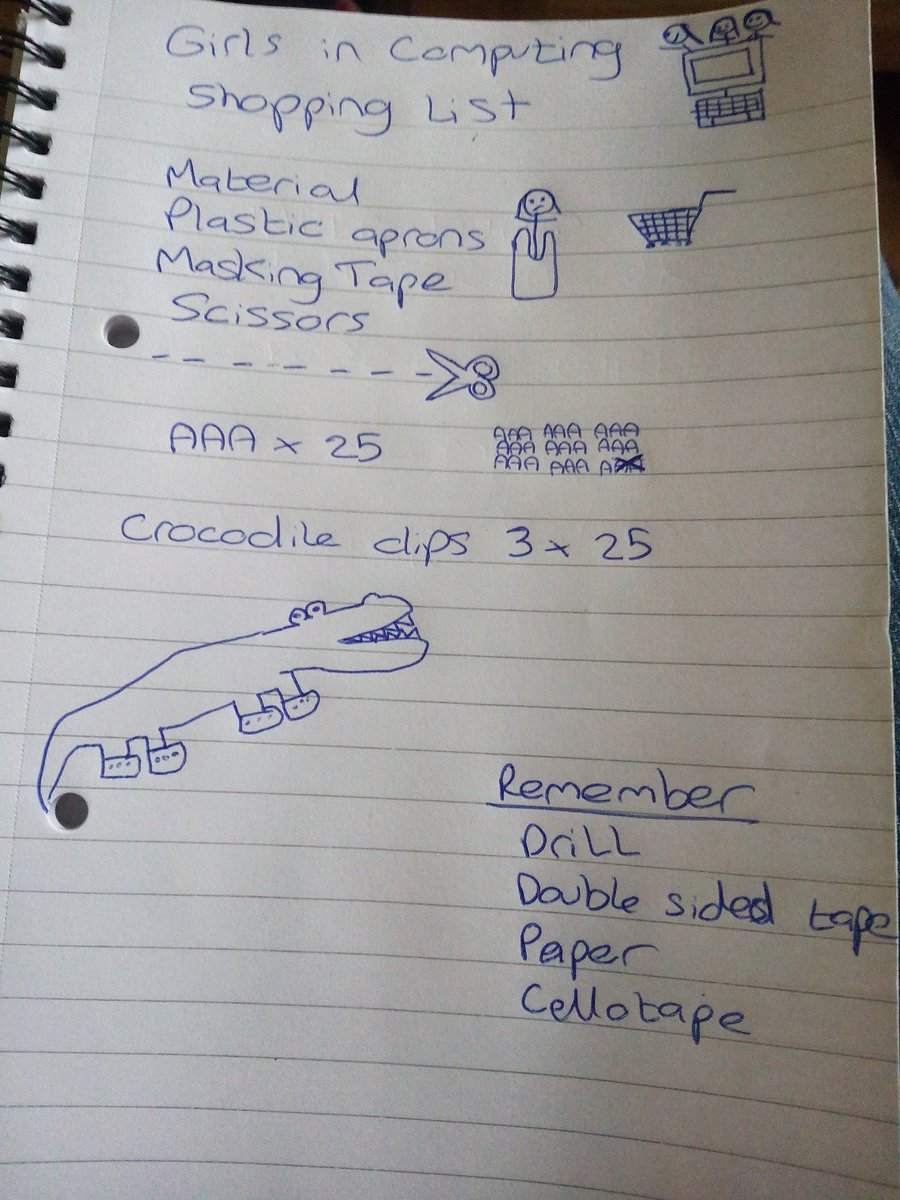 Girls in Computing
Shopping List
Material
Plastic aprons
Masking Tape
Scissors
AAA x 25
AAA AAA AAA
AAA AAA AAA
AAA AAA A
Crocodile clips 3 x 25
Remember
Drill
Double sided tape
Paper
Cellotape